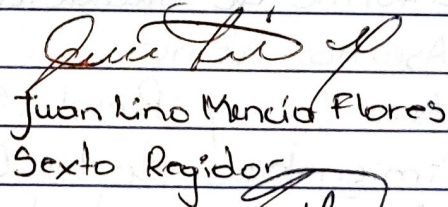 Juan Lino Mencía Flores
Sexto Regidor